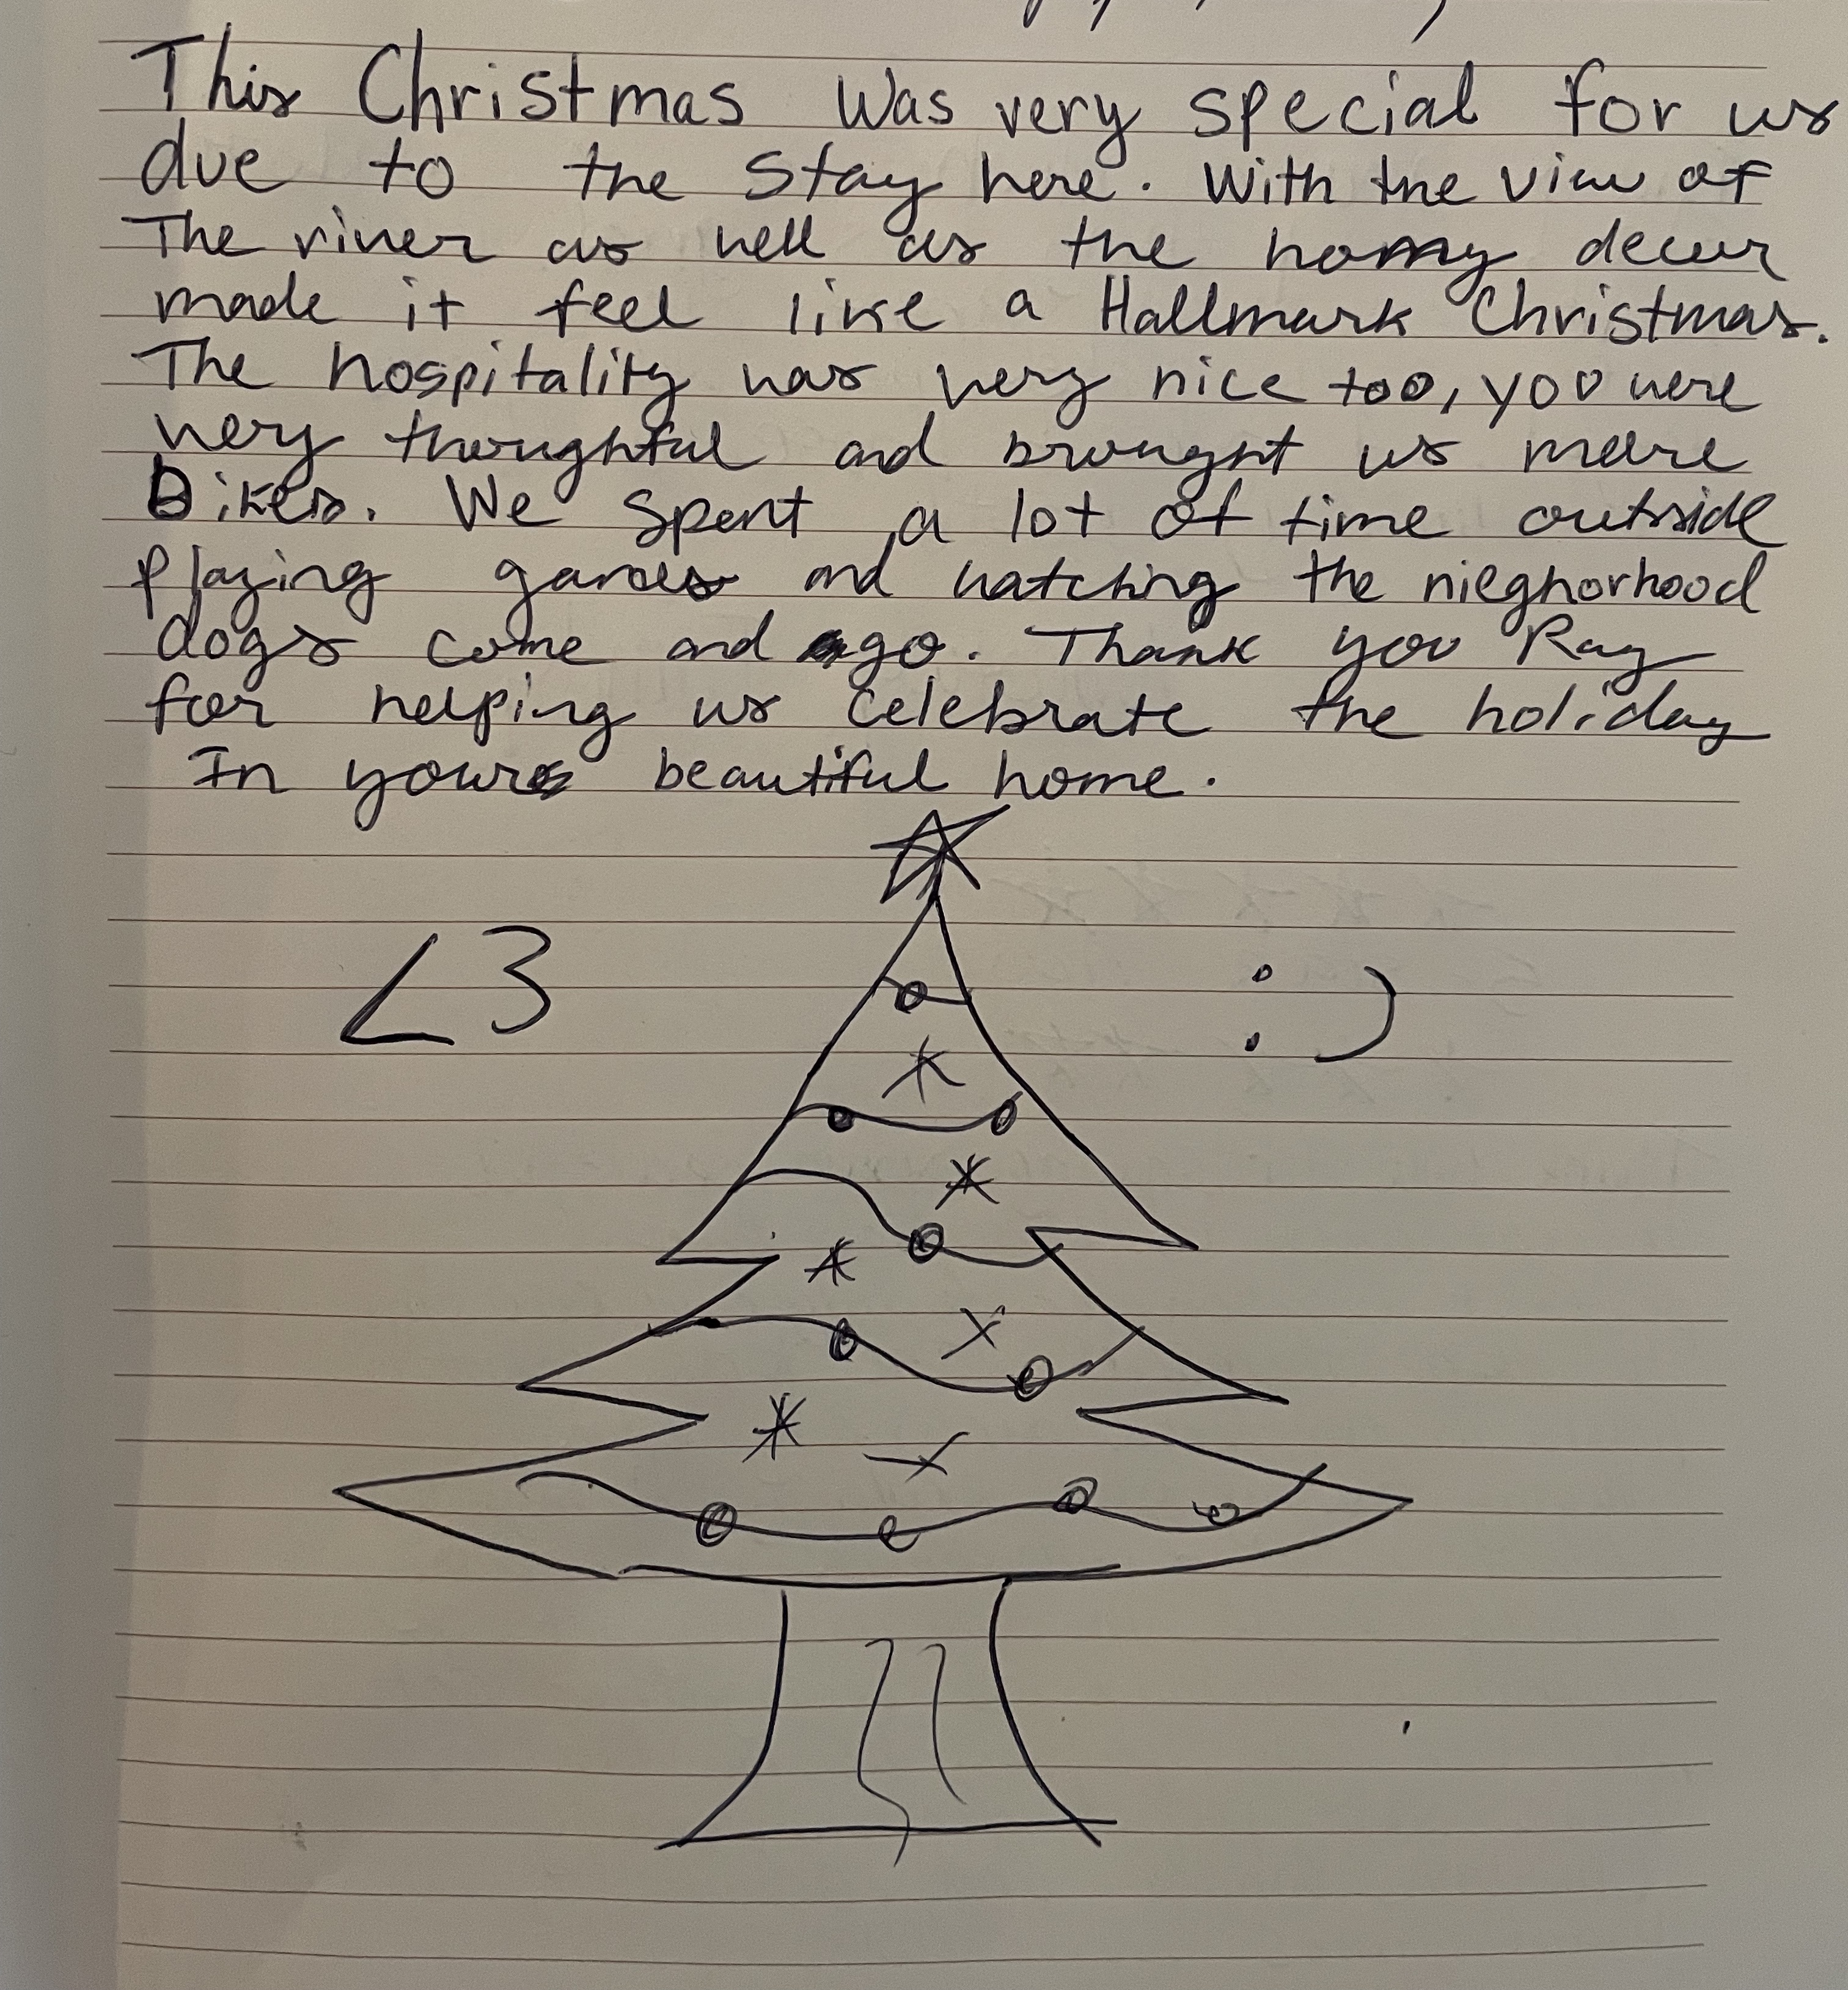 This Christmas Was very special for us
due to the stay here. With the view of
The river as well as the homy decor
made it feel like a Hallmark Christmas.
The hospitality was very nice too, you were
very thoughtful and brought us more
Bikes. We spent a lot of time outside
playing games and watching the nieghorhood
dogs come and go. Thank you Ray
for helping us celebrate the holiday
In your beautiful home.
<3 :)